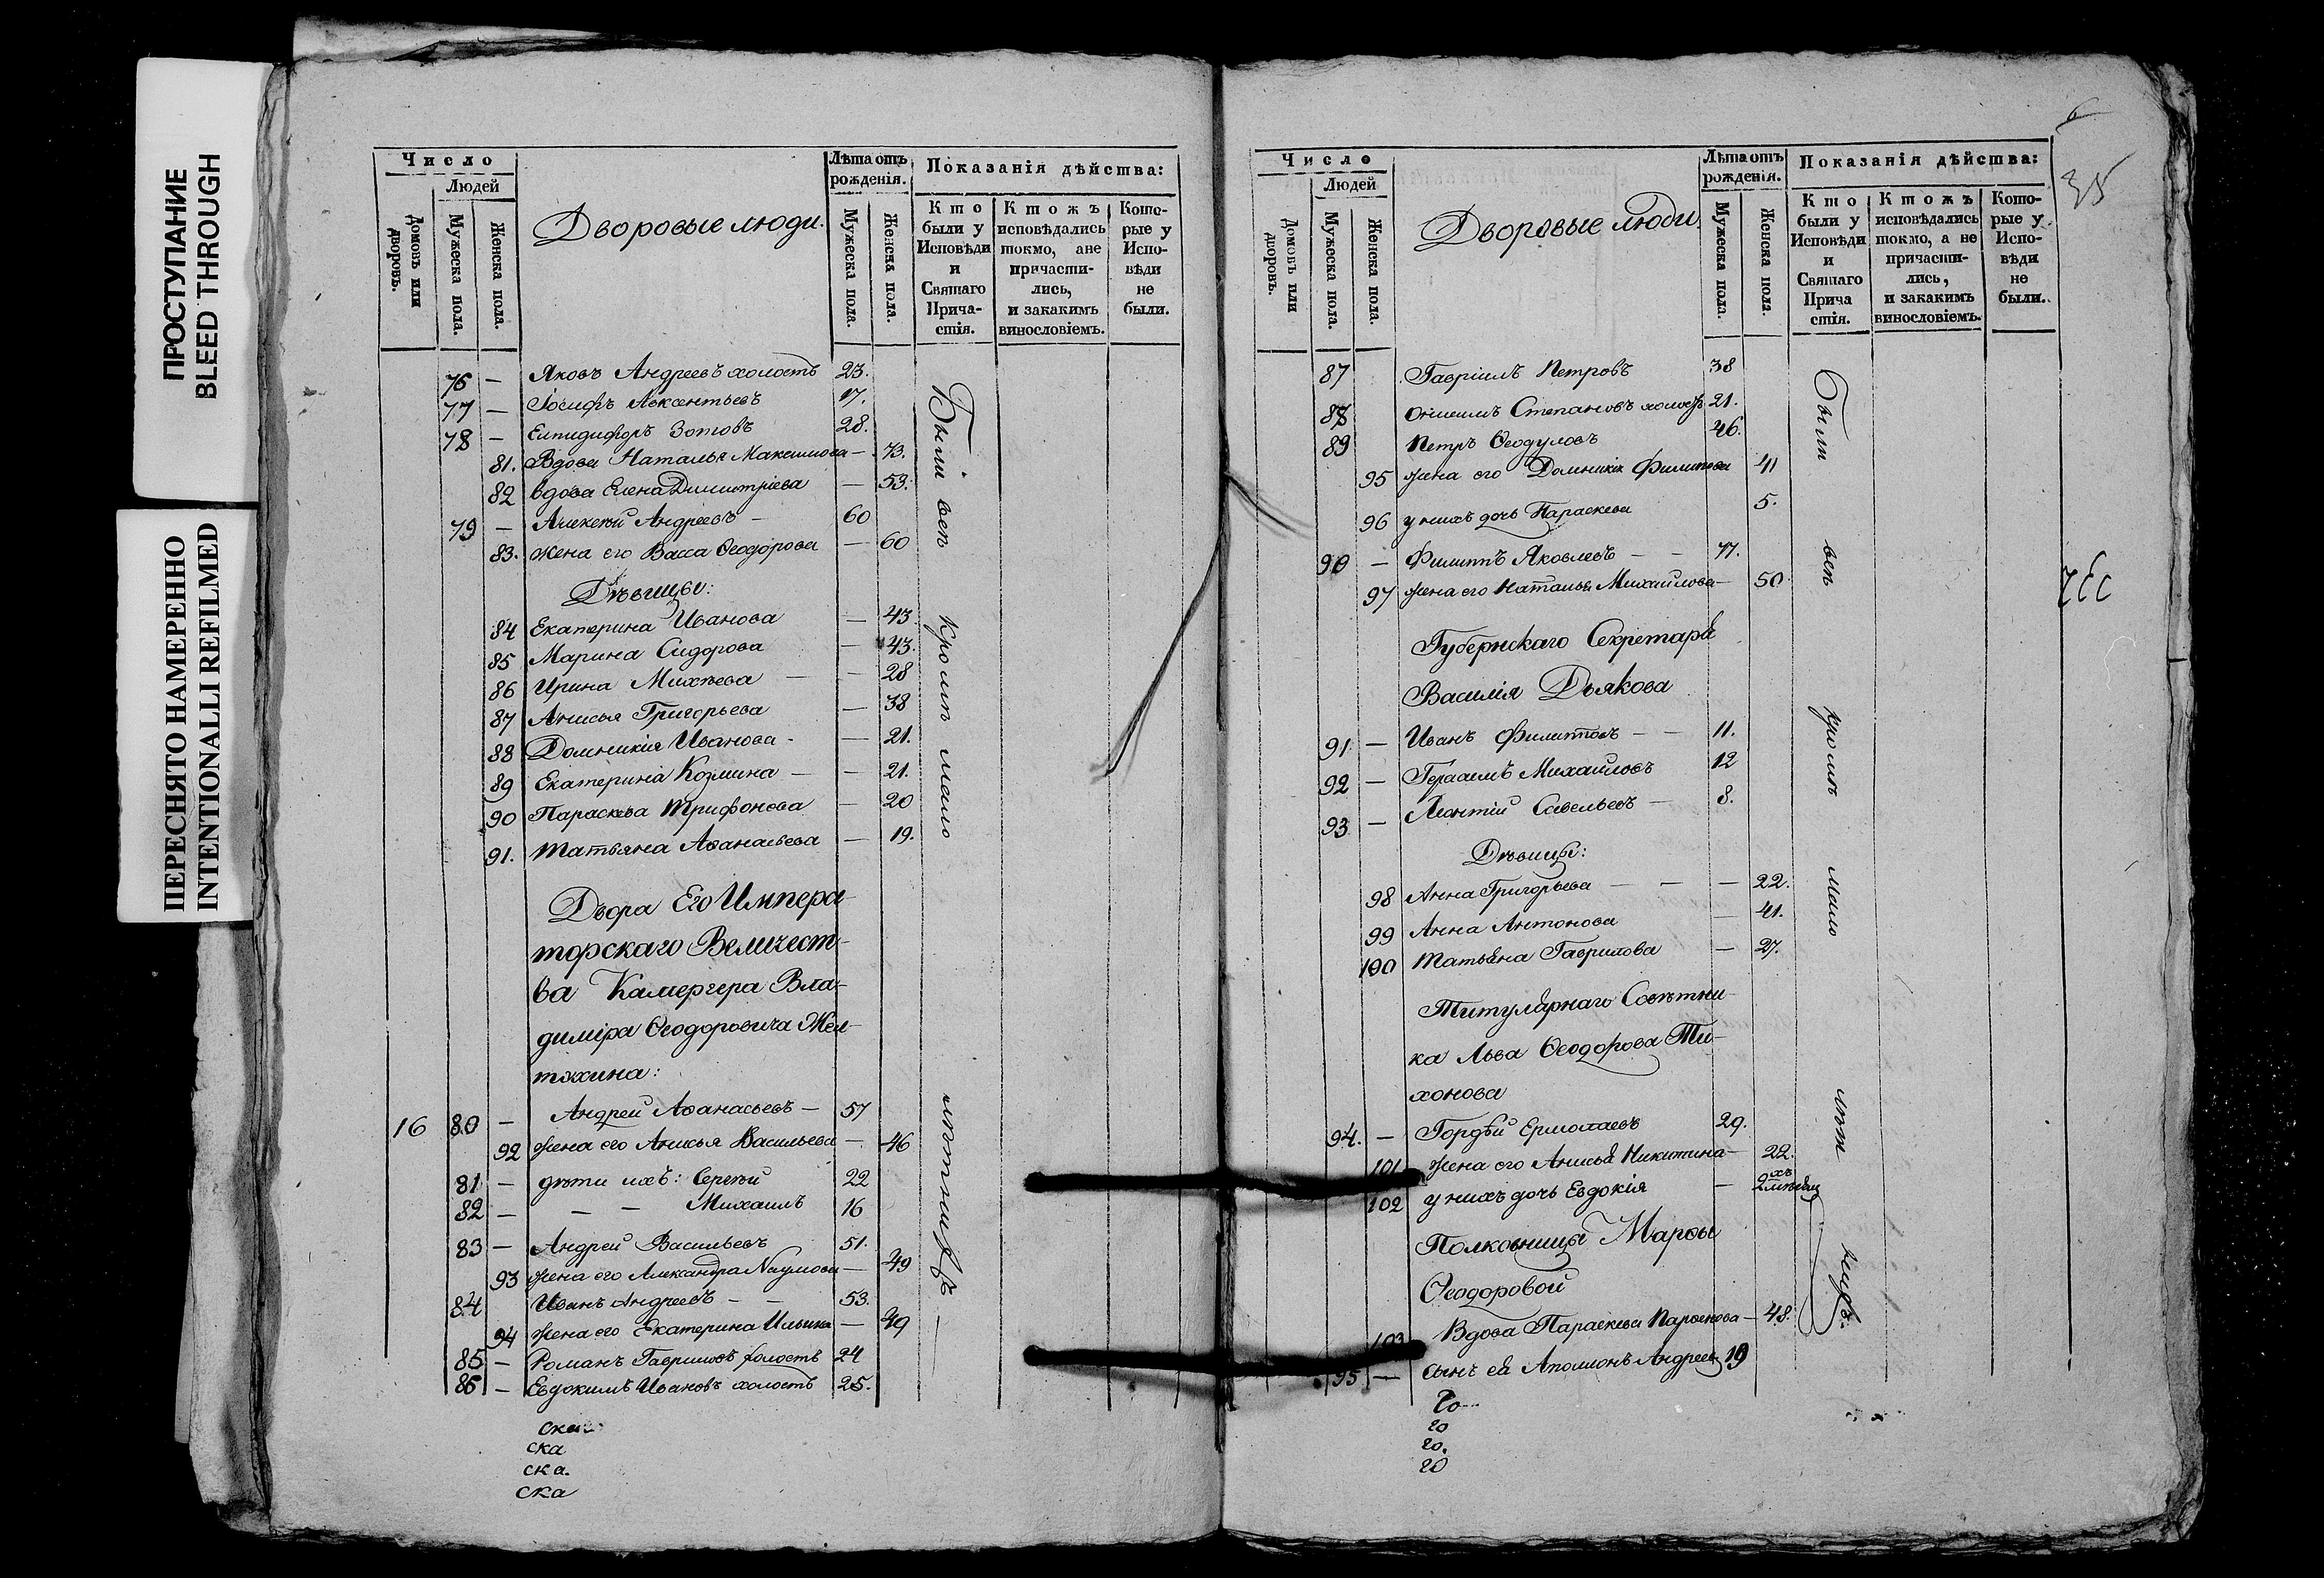 ПРОСТУПАНИЕ
BLEED THROUGH
ПЕРЕСНЯТО НАМЕРЕННО
INTENTIONALLI REFILMED
Число
Людей
Домовъ или дворовъ.
Мужеска пола.
Женска пола.
Дворовые люди.
Лѣта отъ рожденія.
Мужеска пола.
Женска пола.
Показанія дѣйства:
Кто были у Исповѣди и Святаго Прича-стія.
Ктожъ исповѣдались токмо, ане причасти-лись, и закакимъ винословіемъ.
Кото-рые у Испо-вѣди не были.
76 — Яковъ Андреевъ холостъ 23.
77 — Іосифъ Авксентьевъ 17.
78 — Елпидифоръ Зотовъ 28.
81. Вдова Наталья Максимова — 73.
82 вдова Елена Димитріева — 53.
79 — Алексѣй Андреевъ — 60
83. жена его Васса Ѳеодорова — 60
Дѣвицы:
84 Екатерина Иванова — 43
85 Марина Сидорова — 43.
86 Ирина Михѣева — — 28
87 Анисья Григорьева — 38
88 Домникія Иванова — 21.
89 Екатерина Козмина — — 21.
90 Параскева Трифонова — 20
91. Татьяна Аѳанасьева — 19.
Двора Его Импера-
торскаго Величест-
ва Камергера Вла-
диміра Ѳеодоровича Жел-
тухина:
16 80 — Андрей Аѳанасьевъ — 57
92 жена его Анисья Васильева — 46
81 — дѣти ихъ: Сергѣй 22
82 — — — Михаилъ 16
83 — Андрей Васильевъ 51.
93 жена его Александра Наумова — 49
84 Иванъ Андреевъ — — 53.
94 жена его Екатерина Ильина — 49
85 — Романъ Гавриловъ холостъ 24
86 — Евдокимъ Ивановъ холостъ 25.
Были всѣ кромѣ мало лѣтнихъ —
ска
ска
ска.
ска
6
35
Число
Людей
Домовъ или дворовъ.
Мужеска пола.
Женска пола.
Дворовые люди.
Лѣта отъ рожденія.
Мужеска пола.
Женска пола.
Показанія дѣйства:
Кто были у Исповѣди и Святаго Прича стія.
Ктожъ исповѣдались токмо, а не причасти-лись, и закакимъ винословіемъ.
Кото-рые у Испо-вѣди не были.
87 Гавріилъ Петровъ 38
88 Онисимъ Степановъ холостъ 21.
89 Петръ Ѳеодуловъ 46.
95 жена его Домникія Филипова 41
96 у нихъ дочь Параскева 5.
90 — Филиппъ Яковлевъ — — 77.
97 жена его Наталья Михайлова — 50
Губернскаго Секретаря
Василія Дьякова
91. — Иванъ Филиповъ — — 11.
92 — Герасимъ Михайловъ 12
93 — Леонтій Савельевъ — 8.
Дѣвицы:
98 Анна Григорьева — — — 22.
99 Анна Антонова — 41.
100 Татьяна Гаврилова — 27.
Титулярнаго Совѣтни-
ка Льва Ѳеодорова Ти-
хонова
94. — Гордѣй Ермолаевъ 29.
101 жена его Анисья Никитина — 22.
102 у нихъ дочь Евдокія —
Полковницы Марѳы
Ѳеодоровой
103 Вдова Параскева Парѳенова — 48.
95 — сынъ ея Аполлонъ Андреевъ 19
Были всѣ кромѣ мало лѣтнихъ.
го
го
го.
го